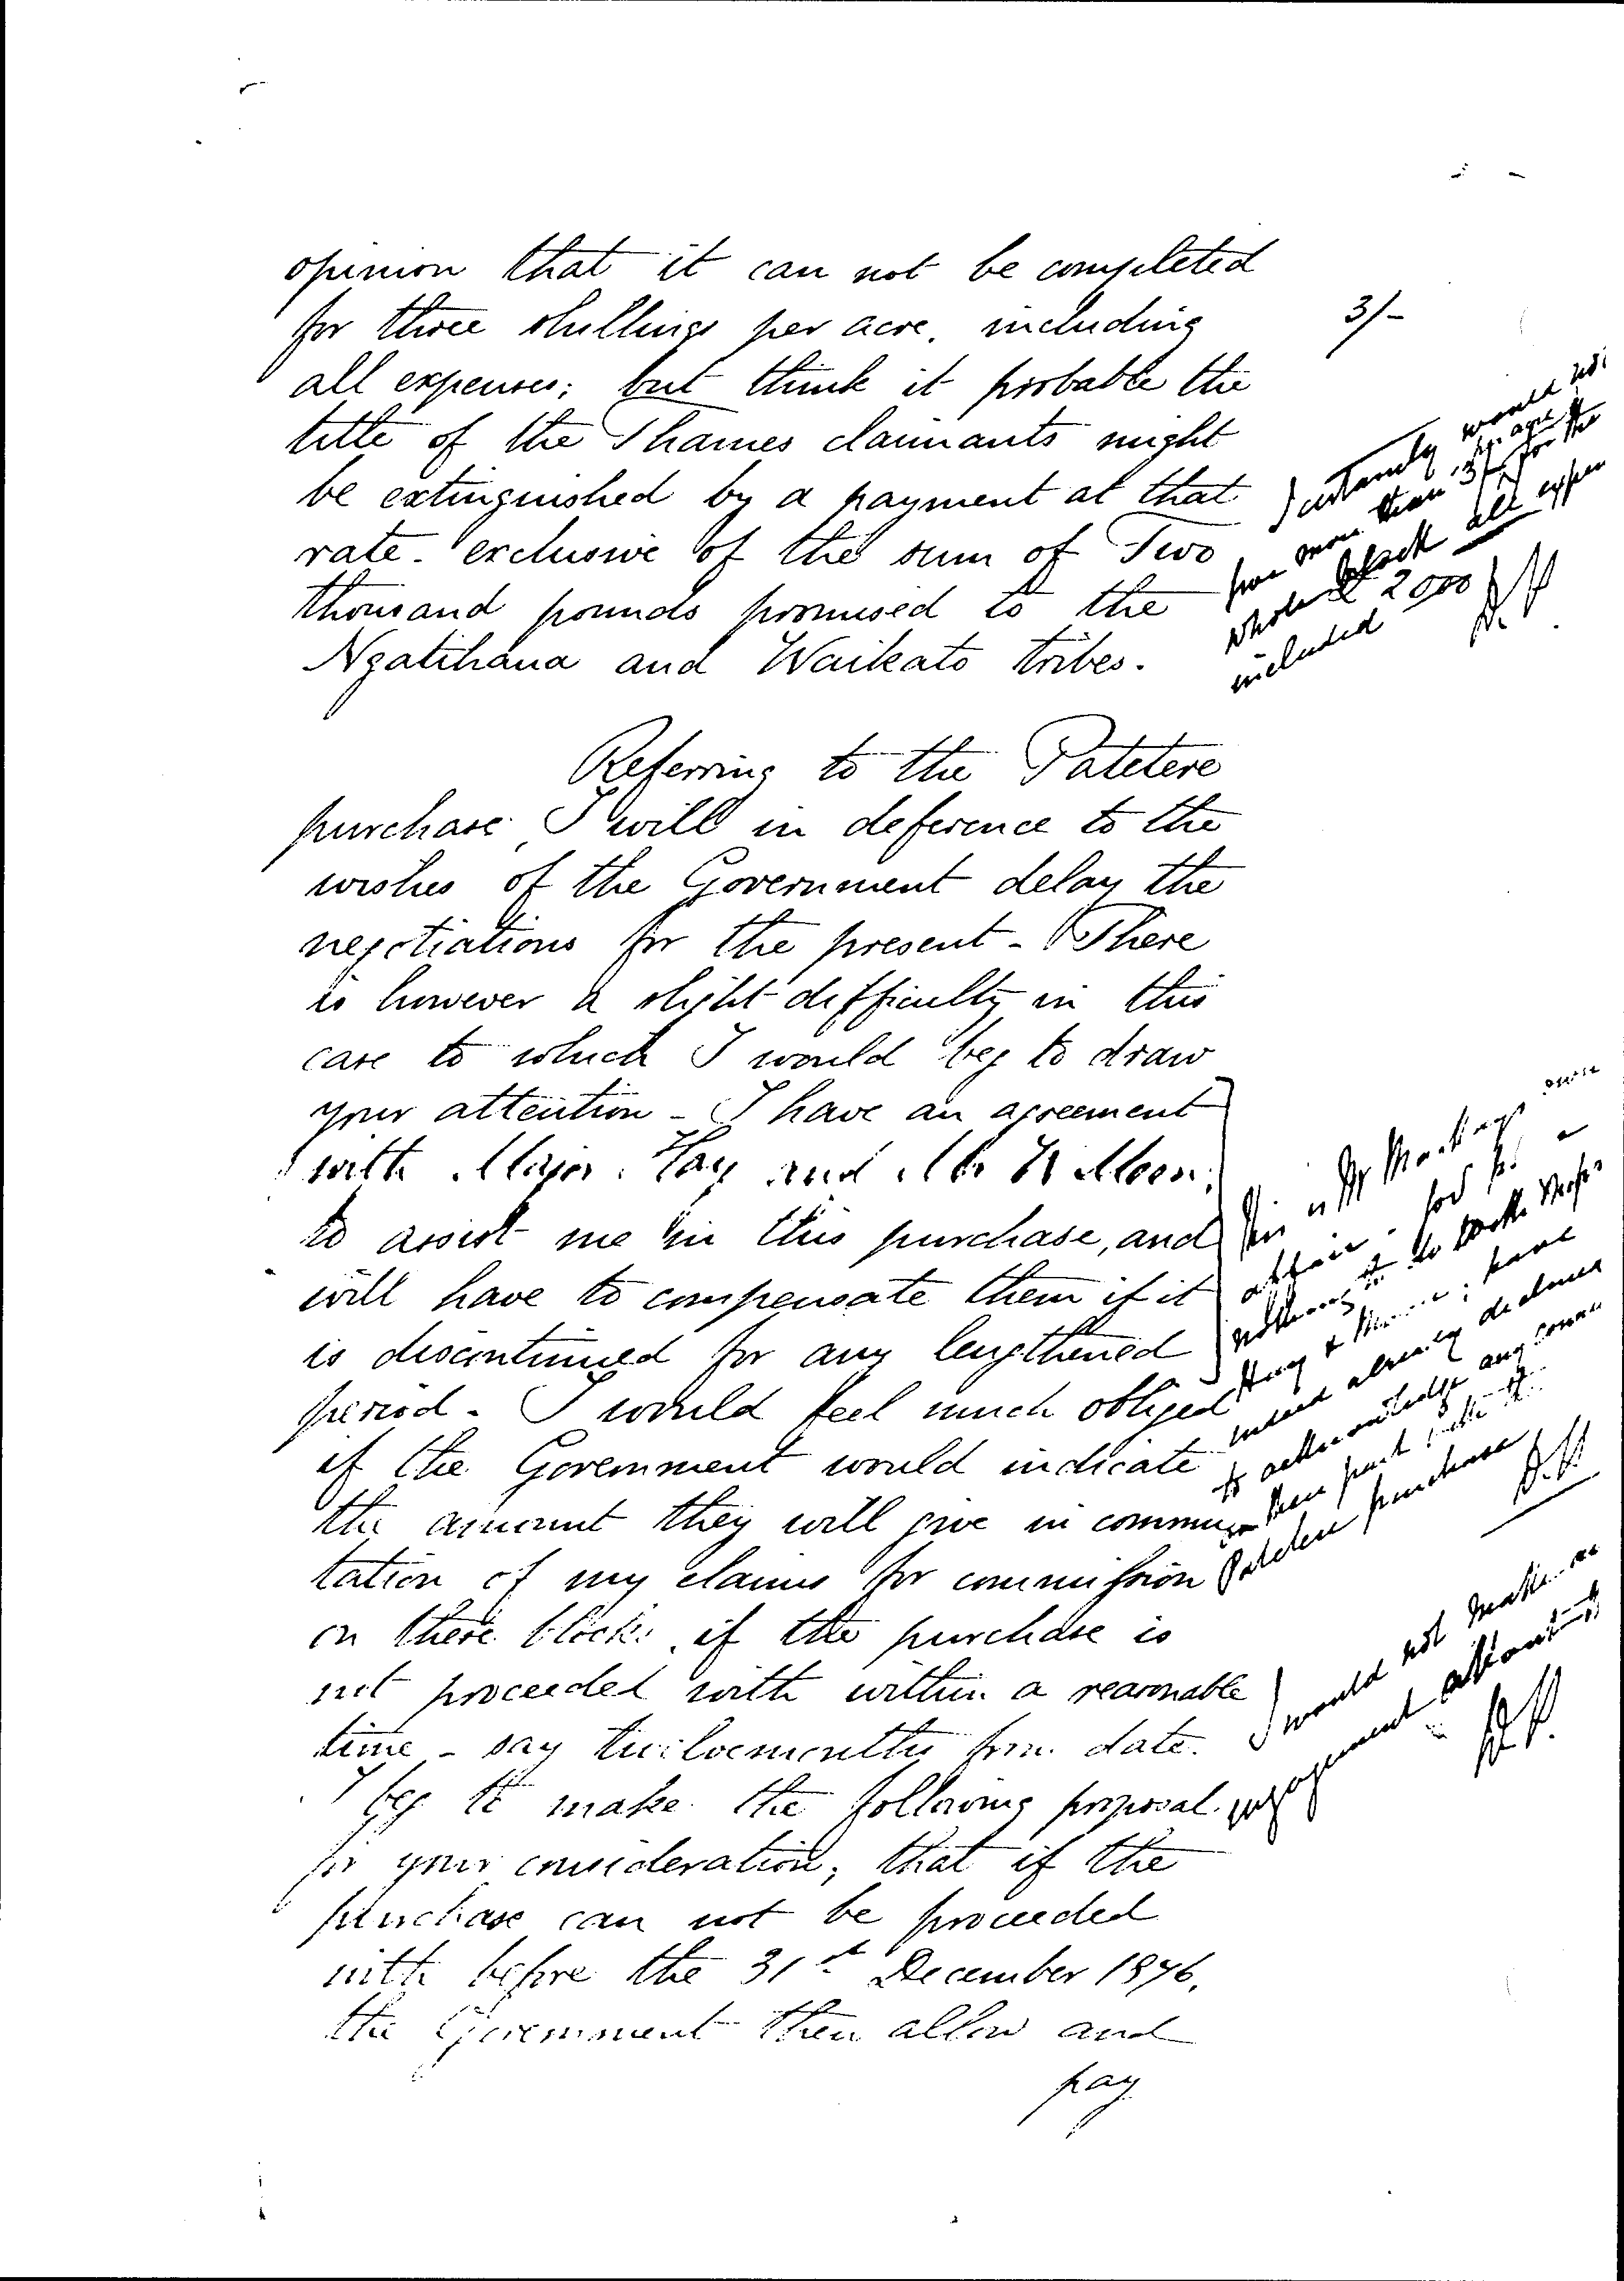 opinion that it can not be completed
for three shillings per acre, including
all expenses; but think it probable the
title of the Thames claimants might
be extinguished by a payment at that
rate - exclusive of the sum of Two
thousand pounds promised to the
Ngatihaua and Waikato tribes.
3/-
I certainly would not
give more than 3/- per acre for the
whole block all expen
2000 included
Referring to the Patetere
purchase, I will in deference to the
wishes of the Government delay the
negotiations for the present - There
is however a slight difficulty in this
case to which I would beg to draw
your attention - I have an agreement
with Major Hay and Mr
to assist me in this purchase, and
will have to compensate them if it
is discontinued for any lengthened
period - I would feel much obliged
if the Government would indicate
the amount they will give in commu-
tation of my claims for commission
on these blocks, if the purchase is
not proceeded with within a reasonable
time - say twelvemonths from date.
This is Mr Mackay's
affair
nothing to do with
Hay & have
already declined
to acknowledge any
Patetere purchase
I would not make
engagement
I beg to make the following proposal
for your consideration; that if the
purchase can not be proceeded
with before the 31st December 1876,
the Government then allow and
pay